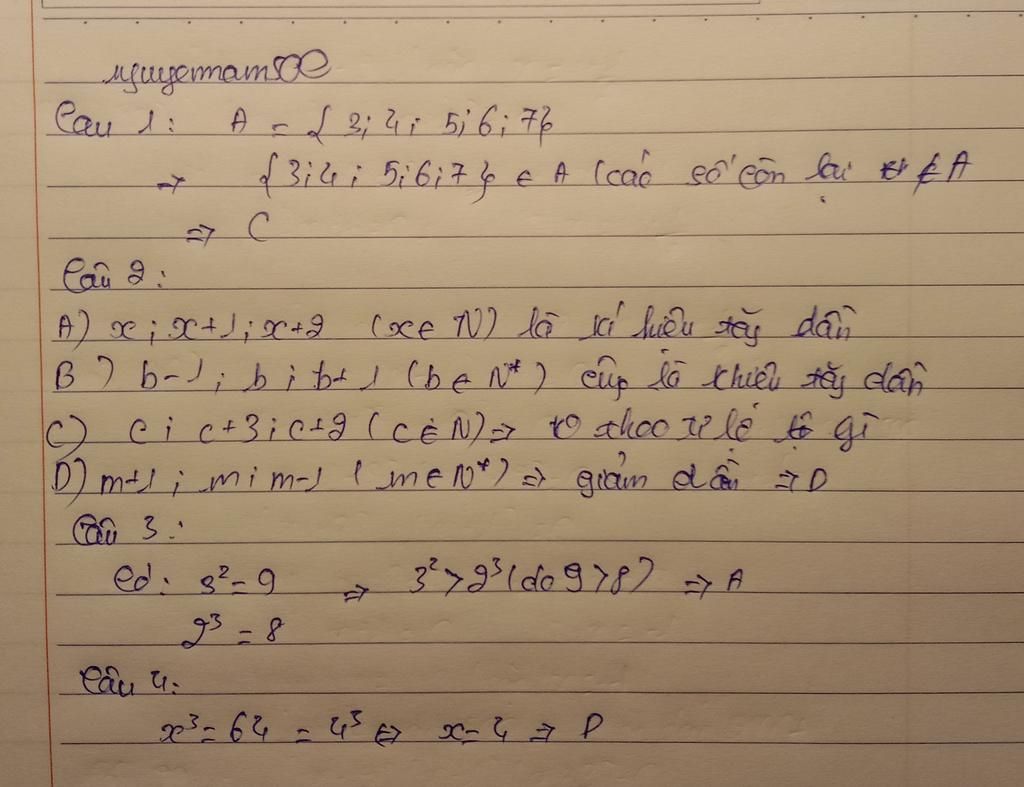 nguyennam50e
Câu 1: A = { 3; 4; 5; 6; 7}
=> {3; 4; 5; 6; 7} ∈ A (các số còn lại ∉ A
=> C
Câu 2:
A) x; x+1; x+2 (x ∈ N) là kí hiệu tăg dần
B) b-1; b; b+1 (b ∈ N*) cũg là khiệu tăg dần
C) c; c+3; c+2 (c ∈ N) => theo tỉ lệ gì
D) m+1; m; m-1 (m ∈ N*) => giảm dần => D
Câu 3:
Có: 3² = 9 => 3² > 2³ (do 9 > 8) => A
2³ = 8
Câu 4:
x³ = 64 = 4³ <=> x = 4 => D